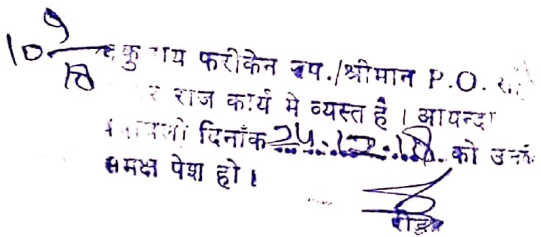 10 9/18
फरीकेन उप./श्रीमान P.O.
राज कार्य मे व्यस्त है । आयन्दा
दिनाँक 24.12.18 को उनके
समक्ष पेश हो ।
रीडर